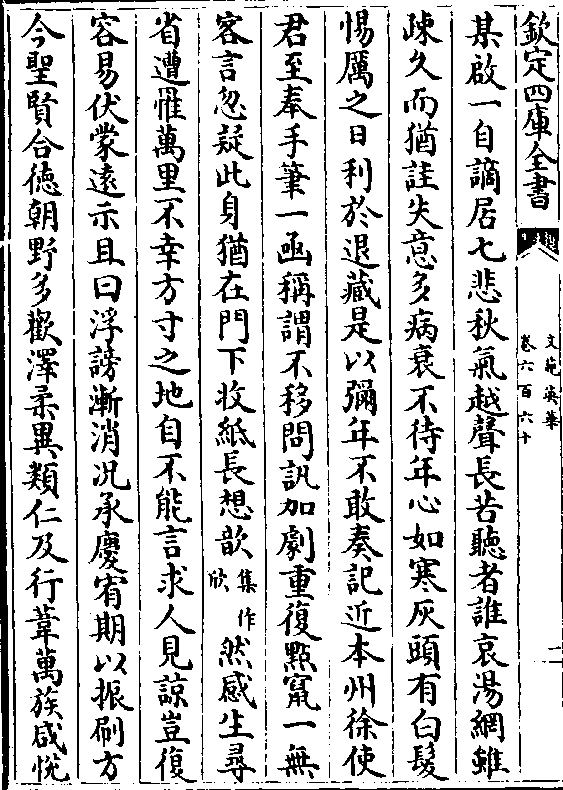 欽定四庫全書
文苑英華
卷六百六十
二
某啟一自謫居七悲秋氣越聲長苦聽者誰哀湯網雖
疎久而猶詿失意多病衰不待年心如寒灰頭有白髮
惕厲之日利於退藏是以彌年不敢奏記近本州徐使
君至奉手筆一函稱謂不移問訊加劇重復點竄一無
客言忽疑此身猶在門下收紙長想歆集作欣然感生尋
省遭罹萬里不幸方寸之地自不能言求人見諒豈復
容易伏蒙遠示且曰浮謗漸消况承慶宥期以振刷方
今聖賢合徳朝野多歡澤柔異類仁及行葦萬族咸悅